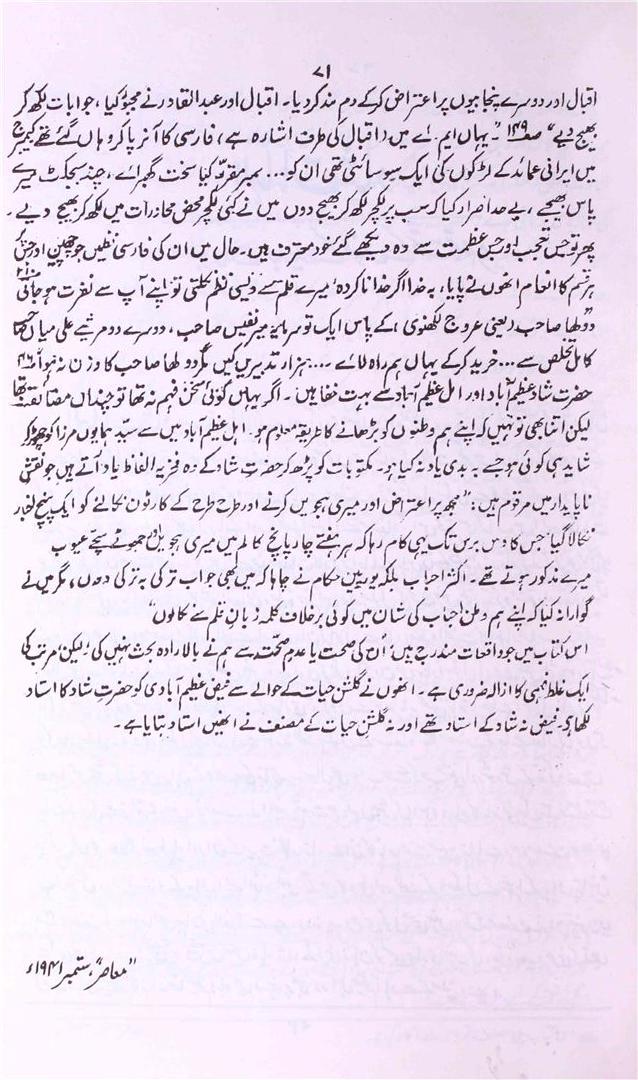 ۷۱
اقبال اور دوسرے پنجابیوں پر اعتراض کر کے دم بند کر دیا۔ اقبال اور عبدالقادر نے مجبور کیا، جوابات لکھ کر
بھیج دیے“ صفہ ۱۴۹ ”یہاں ایم۔ اے میں (اقبال کی طرف اشارہ ہے، فارسی کا آنر پا کر وہاں گئے تھے کیمبرج
میں ایرانی عمائد کے لڑکوں کی ایک سوسائٹی تھی ان کو... ممبر مقرر کیا سخت گھبرائے، چند سبجکٹ میرے
پاس بھیجے، بے حد اصرار کیا کہ سب پر لکچر لکھ کر بھیج دوں میں نے کئی لکچر محض محاورات میں لکھ کر بھیج دیے۔
پھر تو جس تعجب اور جس عظمت سے وہ دیکھے گئے خود معترف ہیں۔ حال میں ان کی فارسی نظمیں جو چھپیں اور جس
ہنر کا انعام انھوں نے پایا، بہ خدا اگر خدا نا کردہ میرے قلم سے ویسی نظم نکلتی تو اپنے آپ سے نفرت ہو جاتی
”دولھا صاحب (یعنی عروج لکھنوی) کے پاس ایک تو سرمایۂ میر نفیس صاحب، دوسرے دو مرثیے علی میاں صاحب
کامل تخلص سے... خرید کر کے یہاں ہم راہ لائے... ہزار تدبیریں کیں مگر دولھا صاحب کا وزن نہ ہوا“
حضرت شاد عظیم آباد اور اہل عظیم آباد سے بہت خفا ہیں۔ اگر یہاں کوئی سخن فہم نہ تھا تو چنداں مضائقہ نہ تھا
لیکن اتنا بھی تو نہیں کہ اپنے ہم وطنوں کو بڑھانے کا طریقہ معلوم ہو۔ اہل عظیم آباد میں سے سید ہمایوں مرزا کو چھوڑ کر
شاید ہی کوئی ہو جسے بہ بدی یاد نہ کیا ہو۔ مکتوبات کو پڑھ کر حضرتِ شاد کے وہ فخریہ الفاظ یاد آتے ہیں جو نقشِ
پایدار میں مرقوم ہیں: ”مجھ پر اعتراض اور میری ہجویں کرنے اور طرح طرح کے کارٹون نکالنے کو ایک پنچ اخبار
نکالا گیا، جس کا دس برس تک یہی کام رہا کہ ہر ہفتے چار پانچ کالم میں میری ہجویں اور جھوٹے سچے عیوب
میرے مذکور ہوتے تھے۔ اکثر احباب بلکہ یورپین حکام نے چاہا کہ میں بھی جواب ترکی بہ ترکی دوں، مگر میں نے
گوارا نہ کیا کہ اپنے ہم وطن احباب کی شان میں کوئی برخلاف کلمہ زبانِ قلم سے نکالوں“
اس کتاب میں جو واقعات مندرج ہیں، اُن کی صحت یا عدمِ صحت سے ہم نے بالارادہ بحث نہیں کی؛ لیکن مرتب کی
ایک غلط فہمی کا ازالہ ضروری ہے۔ انھوں نے گلشن حیات کے حوالے سے فیض عظیم آبادی کو حضرتِ شاد کا استاد
لکھا ہے۔ فیض نہ شاد کے استاد تھے اور نہ گلشن حیات کے مصنف نے انھیں استاد بتایا ہے۔
”معاصر“، ستمبر ۱۹۴۱ء